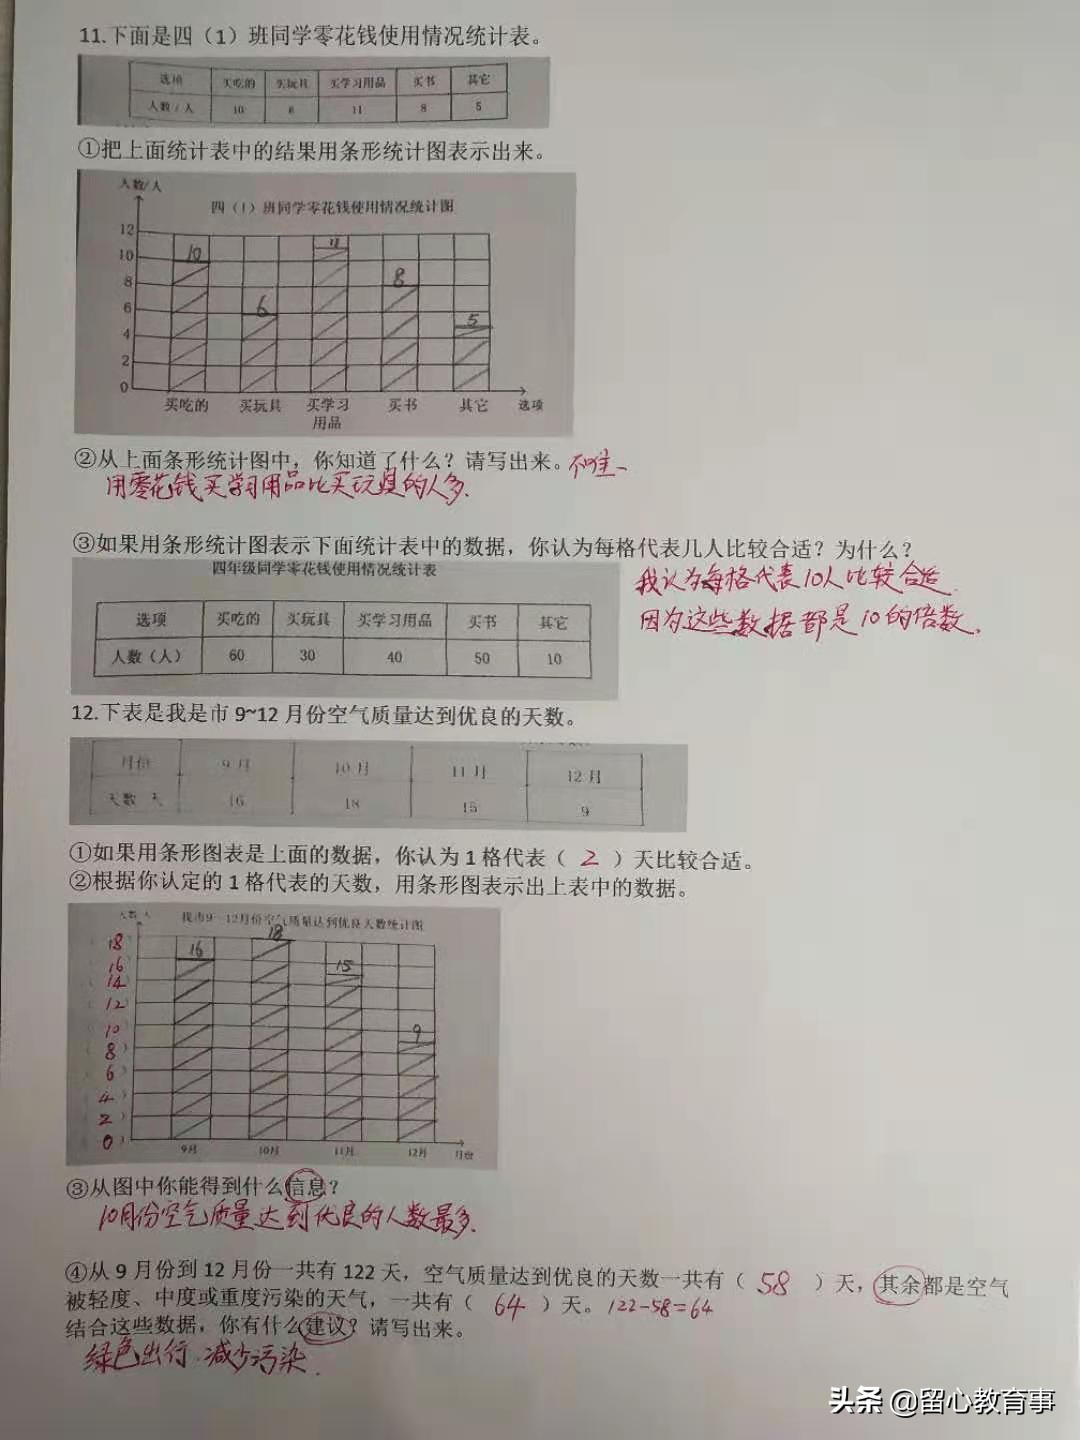 11.下面是四（1）班同学零花钱使用情况统计表。
选项 买吃的 买玩具 买学习用品 买书 其它
人数/人 10 6 11 8 5
①把上面统计表中的结果用条形统计图表示出来。
人数/人
四（1）班同学零花钱使用情况统计图
12
10
8
6
4
2
0
10 6 11 8 5
买吃的 买玩具 买学习用品 买书 其它 选项
②从上面条形统计图中，你知道了什么？请写出来。不唯一
用零花钱买学习用品比买玩具的人多.
③如果用条形统计图表示下面统计表中的数据，你认为每格代表几人比较合适？为什么？
我认为每格代表10人比较合适.
因为这些数据都是10的倍数.
四年级同学零花钱使用情况统计表
选项 买吃的 买玩具 买学习用品 买书 其它
人数（人） 60 30 40 50 10
12.下表是我是市9~12月份空气质量达到优良的天数。
月份 9月 10月 11月 12月
天数 天 16 18 15 9
①如果用条形图表是上面的数据，你认为1格代表（ 2 ）天比较合适。
②根据你认定的1格代表的天数，用条形图表示出上表中的数据。
我市9~12月份空气质量达到优良天数统计图
18
16
14
12
10
8
6
4
2
0
16 18 15 9
9月 10月 11月 12月 月份
③从图中你能得到什么信息？
10月份空气质量达到优良的人数最多.
④从9月份到12月份一共有122天，空气质量达到优良的天数一共有（ 58 ）天，其余都是空气
被轻度、中度或重度污染的天气，一共有（ 64 ）天。122-58=64
结合这些数据，你有什么建议？请写出来。
绿色出行.减少污染.
头条 @留心教育事